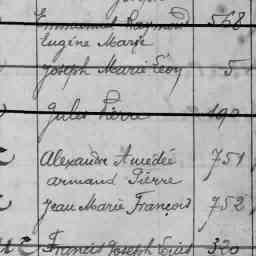 Emmanuel Raymond 568
Eugène Marie
Joseph Marie Léon 5
Jules Pierre 190
Alexandre Amédée 751
armand Pierre
Jean Marie François 752
Francis Joseph Louis 320